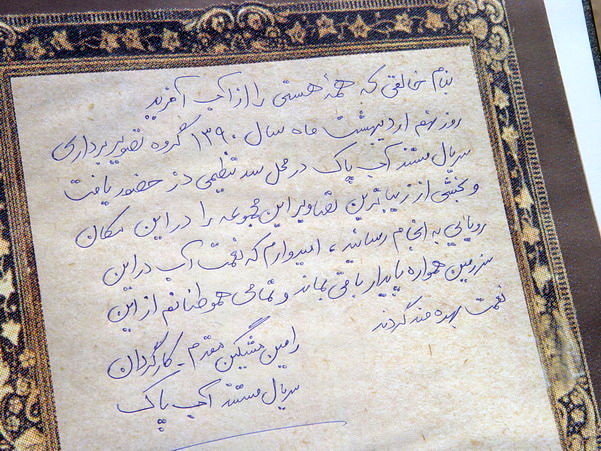 بنام خالقی که همهٔ هستی را از آب آفرید
روز نهم اردیبهشت ماه سال ۱۳۹۰ گروه تصویربرداری
سریال مستند آب پاک در محل سد تنظیمی دز حضور یافت
و بخشی از زیباترین تصاویر این مجموعه را در این مکان
رویایی به انجام رسانید، امیدوارم که نعمت آب در این
سرزمین همواره پایدار باقی بماند و تمامی هموطنانم از این
نعمت بهره مند گردند
رامین مشگین مقدم - کارگردان
سریال مستند آب پاک